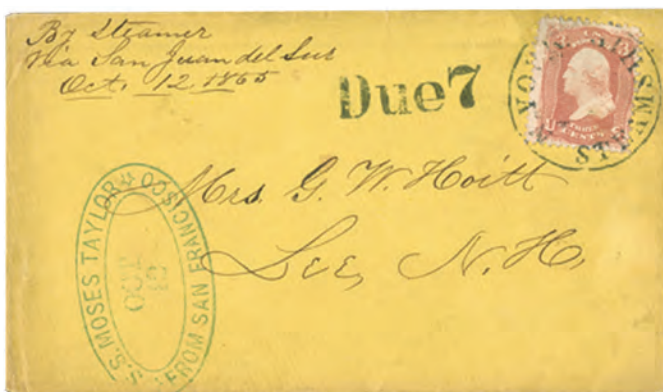 By Steamer
Via San Juan del Sur
Oct. 12 1865
Due 7
U
CENTS
STEAMSHIP
Mrs. G. W. Hoitt
Lee, N. H.
S.S. MOSES TAYLOR
OCT
13
FROM SAN FRANCISCO